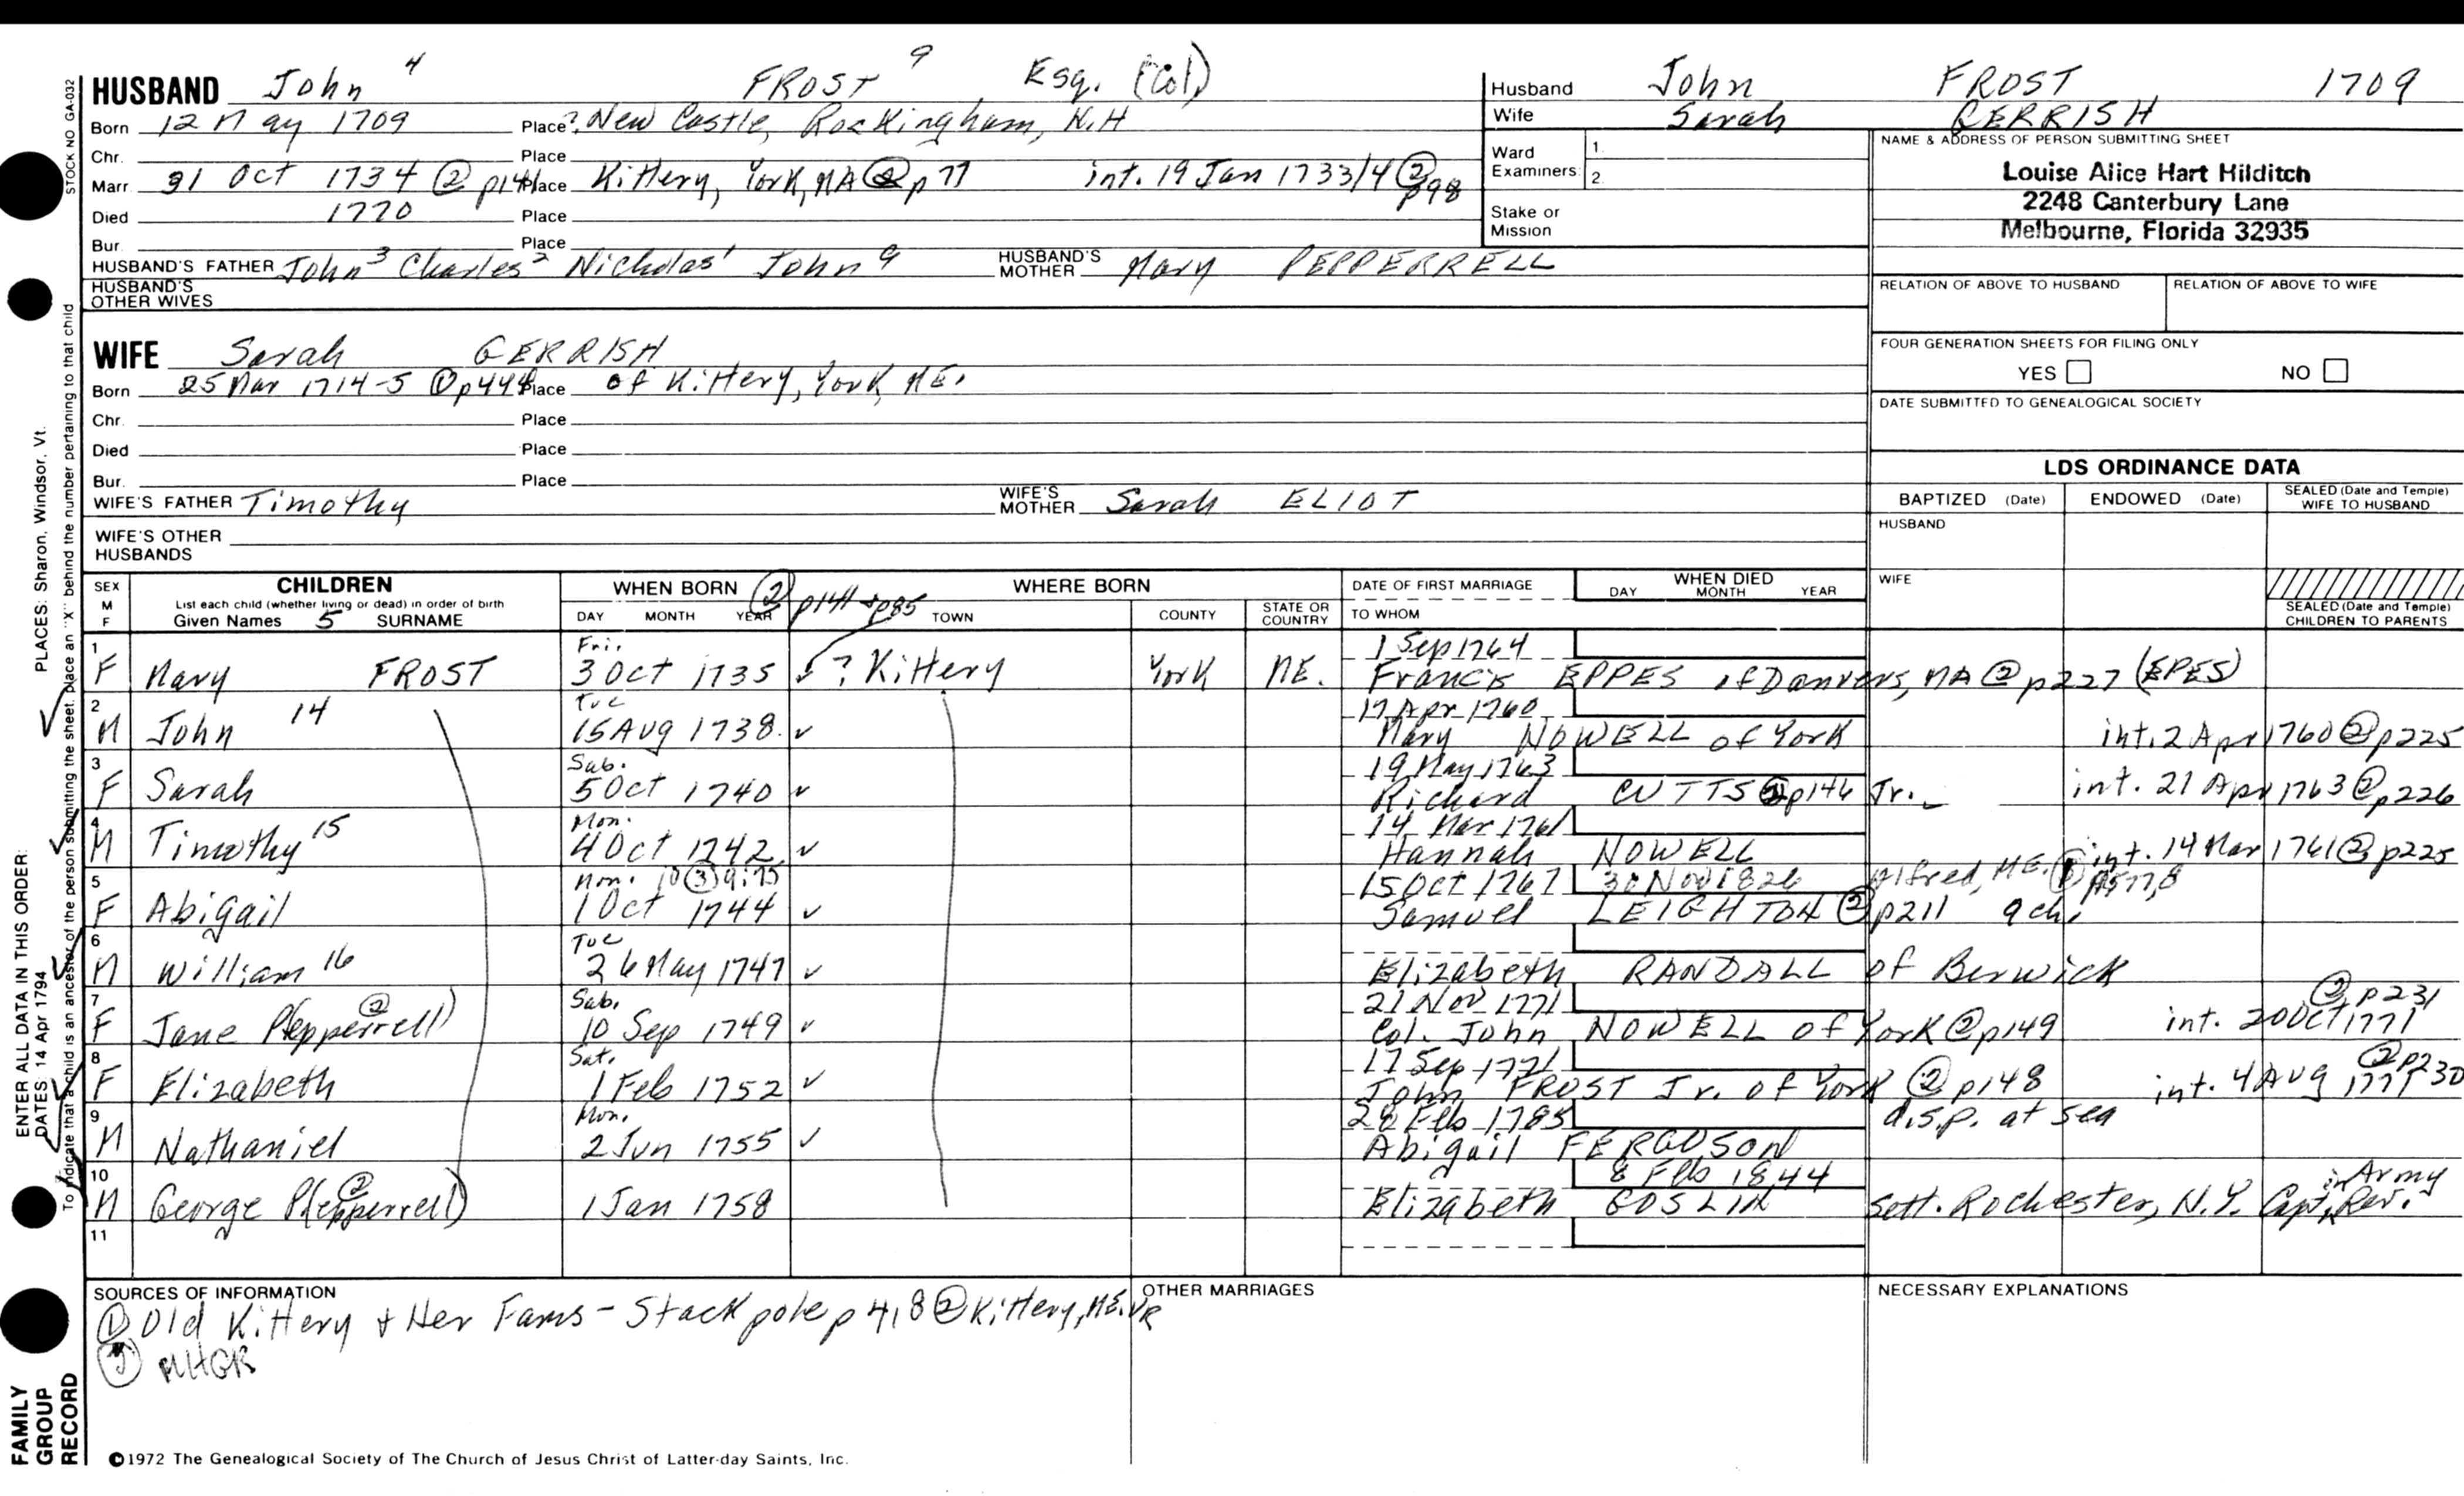 HUSBAND John 4 FROST 9 Esq. (Col)
Born 12 May 1709 Place ? New Castle, Rockingham, N.H
Chr. Place
Marr. 31 Oct 1734 ② p141 Place Kittery, York, MA ② p 77 int. 19 Jan 1733/4 ② p98
Died 1770 Place
Bur. Place
HUSBAND'S FATHER John 3 Charles 2 Nicholas 1 John 9 HUSBAND'S MOTHER Mary PEPPERRELL
HUSBAND'S OTHER WIVES
WIFE Sarah GERRISH
Born 25 Mar 1714-5 ① p444 Place of Kittery, York, ME.
Chr. Place
Died Place
Bur. Place
WIFE'S FATHER Timothy WIFE'S MOTHER Sarah ELIOT
WIFE'S OTHER HUSBANDS
Husband John FROST 1709
Wife Sarah GERRISH
Ward Examiners: 1. 2.
Stake or Mission
NAME & ADDRESS OF PERSON SUBMITTING SHEET
Louise Alice Hart Hilditch
2248 Canterbury Lane
Melbourne, Florida 32935
RELATION OF ABOVE TO HUSBAND RELATION OF ABOVE TO WIFE
FOUR GENERATION SHEETS FOR FILING ONLY
YES NO
DATE SUBMITTED TO GENEALOGICAL SOCIETY
LDS ORDINANCE DATA
BAPTIZED (Date) ENDOWED (Date) SEALED (Date and Temple) WIFE TO HUSBAND
HUSBAND
WIFE
SEALED (Date and Temple) CHILDREN TO PARENTS
SEX M F CHILDREN List each child (whether living or dead) in order of birth Given Names 5 SURNAME
WHEN BORN DAY MONTH YEAR ② p141 + p85 WHERE BORN TOWN COUNTY STATE OR COUNTRY
DATE OF FIRST MARRIAGE TO WHOM WHEN DIED DAY MONTH YEAR
1 Fri. 1 Sep 1764
F Mary FROST 3 Oct 1735 ✓ ? Kittery York ME. Francis EPPES of Danvers, MA ② p227 (EPES)
2 Tue 17 Apr 1760
M John 14 15 Aug 1738 ✓ Mary NOWELL of York int. 2 Apr 1760 ② p225
3 Sab. 19 May 1763
F Sarah 5 Oct 1740 ✓ Richard CUTTS ② p146 Jr. int. 21 Apr 1763 ② p226
4 Mon. 14 Mar 1761
M Timothy 15 4 Oct 1742 ✓ Hannah NOWELL int. 14 Mar 1761 ② p225
5 Mon. 10 ③ 9:75 15 Oct 1767 30 Nov 1826 Alfred, ME.
F Abigail 1 Oct 1744 ✓ Samuel LEIGHTON ② p211 9 ch.
6 Tue
M William 16 26 May 1747 ✓ Elizabeth RANDALL of Berwick
7 Sab. 21 Nov 1771 ② p231
F Jane P(epperrell) ② 10 Sep 1749 ✓ Col. John NOWELL of York ② p149 int. 20 Oct 1771
8 Sat. 17 Sep 1771 ② p230
F Elizabeth 1 Feb 1752 ✓ John FROST Jr. of York ② p148 int. 4 Aug 1771
9 Mon. 28 Feb 1785 d.s.p. at sea
M Nathaniel 2 Jun 1755 ✓ Abigail FERGUSON
10 8 Feb 1844 in Army
M George P(epperrell) ② 1 Jan 1758 Elizabeth GOSLIN Sett. Rochester, N.Y. Capt, Rev.
11
SOURCES OF INFORMATION OTHER MARRIAGES NECESSARY EXPLANATIONS
① Old Kittery & Her Fams - Stackpole p 418 ② Kittery, ME. VR
③ MHGR
©1972 The Genealogical Society of The Church of Jesus Christ of Latter-day Saints, Inc.
STOCK NO GA-032
PLACES: Sharon, Windsor, Vt.
To indicate that a child is an ancestor of the person submitting the sheet, place an "X" behind the number pertaining to that child
ENTER ALL DATA IN THIS ORDER:
DATES: 14 Apr 1794
FAMILY GROUP RECORD